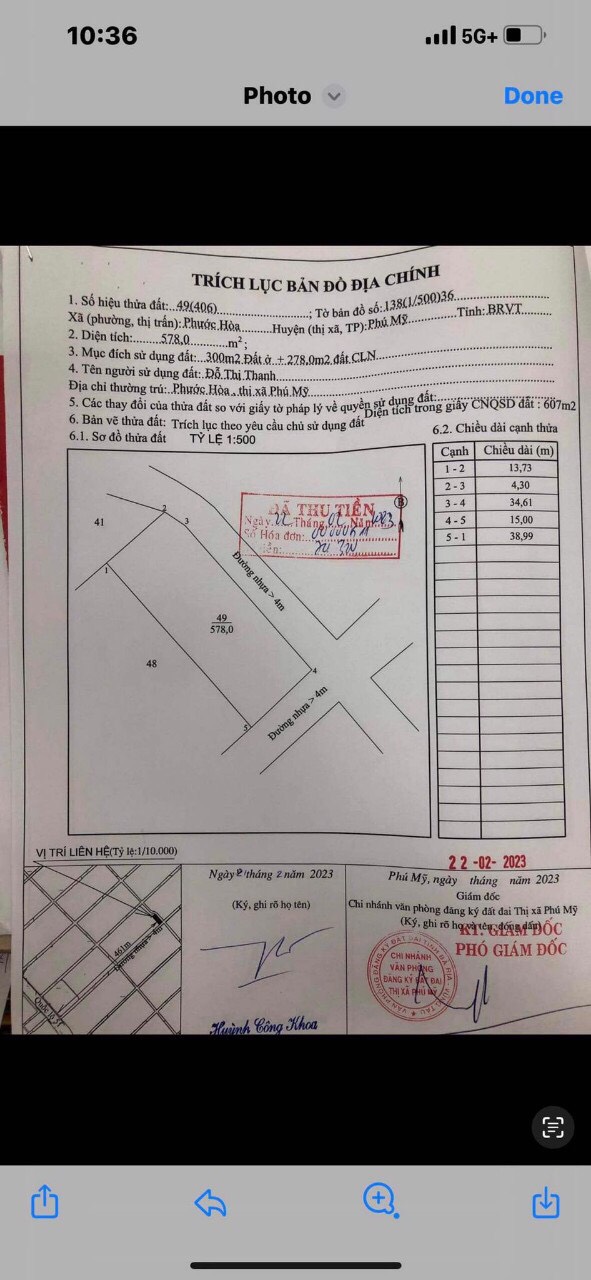 10:36
5G+
Photo
Done
TRÍCH LỤC BẢN ĐỒ ĐỊA CHÍNH
1. Số hiệu thửa đất: 49(406) ; Tờ bản đồ số: 138(1/500)36
Xã (phường, thị trấn): Phước Hòa Huyện (thị xã, TP): Phú Mỹ Tỉnh: BRVT
2. Diện tích: 578,0 m²;
3. Mục đích sử dụng đất: 300m2 Đất ở + 278,0m2 đất CLN
4. Tên người sử dụng đất: Đỗ Thị Thanh
Địa chỉ thường trú: Phước Hòa, thị xã Phú Mỹ
5. Các thay đổi của thửa đất so với giấy tờ pháp lý về quyền sử dụng đất:
Diện tích trong giấy CNQSD đất : 607m2
6. Bản vẽ thửa đất: Trích lục theo yêu cầu chủ sử dụng đất
6.1. Sơ đồ thửa đất TỶ LỆ 1:500
6.2. Chiều dài cạnh thửa
Cạnh Chiều dài (m)
1 - 2 13,73
2 - 3 4,30
3 - 4 34,61
4 - 5 15,00
5 - 1 38,99
ĐÃ THU TIỀN
Ngày Tháng Năm
Số Hóa đơn:
B
41
2
3
Đường nhựa > 4m
1
49
578,0
48
4
5
Đường nhựa > 4m
VỊ TRÍ LIÊN HỆ(Tỷ lệ:1/10.000)
461m
Đường nhựa > 4m
Quốc lộ 51
Ngày tháng 2 năm 2023
(Ký, ghi rõ họ tên)
Huỳnh Công Khoa
22-02-2023
Phú Mỹ, ngày tháng năm 2023
Giám đốc
Chi nhánh văn phòng đăng ký đất đai Thị xã Phú Mỹ
(Ký, ghi rõ họ và tên, đóng dấu)
KT. GIÁM ĐỐC
PHÓ GIÁM ĐỐC
VĂN PHÒNG ĐĂNG KÝ ĐẤT ĐAI TỈNH BÀ RỊA - VŨNG TÀU
CHI NHÁNH
VĂN PHÒNG
ĐĂNG KÝ ĐẤT ĐAI
THỊ XÃ PHÚ MỸ